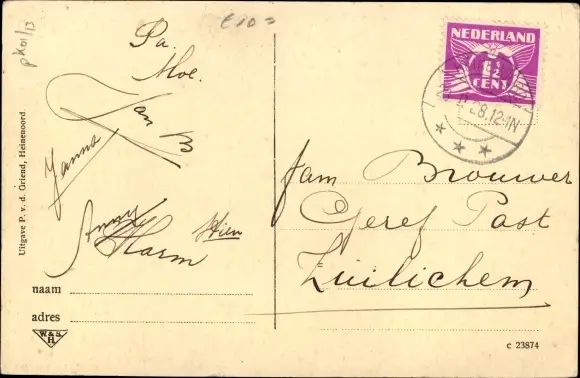 pk01/13
€10=
Pa.
Moe.
Jan B
Janna
Anny
Harm
Hien
Uitgave P. v. d. Griend, Heinenoord
naam
adres
W.& S.
H.
NEDERLAND
1½
CENT
8.12-1N
Fam Brouwer
Geref Past
Zuilichem
c 23874